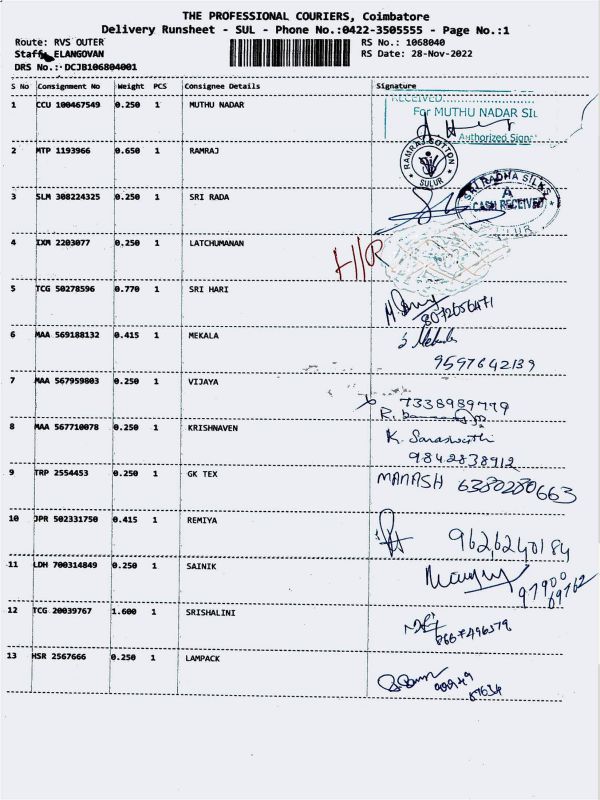 THE PROFESSIONAL COURIERS, Coimbatore
Delivery Runsheet - SUL - Phone No.:0422-3505555 - Page No.:1
Route: RVS OUTER RS No.: 1068040
Staff: ELANGOVAN RS Date: 28-Nov-2022
DRS No.: DCJB106804001
S No Consignment No Weight PCS Consignee Details Signature
RECEIVED
For MUTHU NADAR SIL
1 CCU 100467549 0.250 1 MUTHU NADAR
Authorized Signa
2 MTP 1193966 0.650 1 RAMRAJ
RAMRAJ COTTON
SULUR
3 SLM 308224325 0.250 1 SRI RADA
SRI RADHA SILKS
CASH RECEIVED
4 IXM 2203077 0.250 1 LATCHUMANAN
H/R
5 TCG 50278596 0.770 1 SRI HARI
6 MAA 569188132 0.415 1 MEKALA
S Mekala
9597642139
7 MAA 567959803 0.250 1 VIJAYA
7338989779
8 MAA 567710078 0.250 1 KRISHNAVEN
K. Saraswathi
9842838912
9 TRP 2554453 0.250 1 GK TEX
MANASH 6380280663
10 JPR 502331750 0.415 1 REMIYA
9626240184
11 LDH 700314849 0.250 1 SAINIK
97900
69762
12 TCG 20039767 1.600 1 SRISHALINI
13 HSR 2567666 0.250 1 LAMPACK